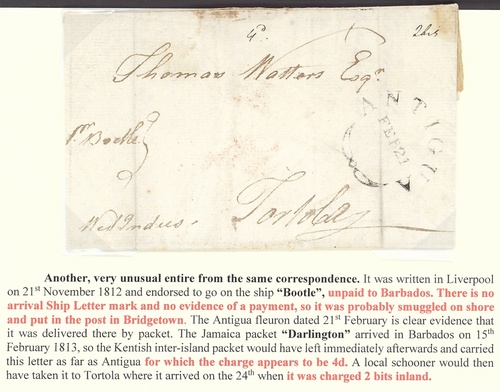 4d.
2 bits
Thomas Watters Esqr.
ANTIGUA
FEB 21
pr Bootle
Tortola
West Indies.
Another, very unusual entire from the same correspondence. It was written in Liverpool
on 21st November 1812 and endorsed to go on the ship "Bootle", unpaid to Barbados. There is no
arrival Ship Letter mark and no evidence of a payment, so it was probably smuggled on shore
and put in the post in Bridgetown. The Antigua fleuron dated 21st February is clear evidence that
it was delivered there by packet. The Jamaica packet "Darlington" arrived in Barbados on 15th
February 1813, so the Kentish inter-island packet would have left immediately afterwards and carried
this letter as far as Antigua for which the charge appears to be 4d. A local schooner would then
have taken it to Tortola where it arrived on the 24th when it was charged 2 bits inland.